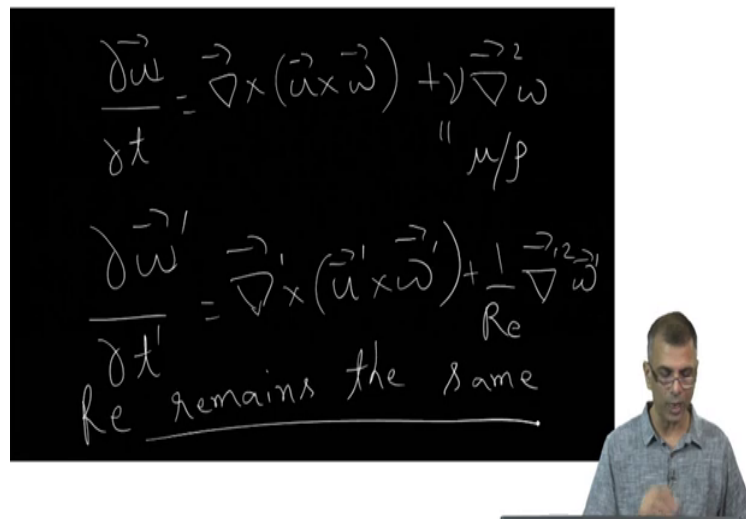 ∂ω⃗/∂t = ∇⃗ × (u⃗ × ω⃗) + ν ∇⃗² ω
" μ/ρ
∂ω⃗'/∂t' = ∇⃗' × (u⃗' × ω⃗') + 1/Re ∇⃗'² ω⃗'
Re remains the same